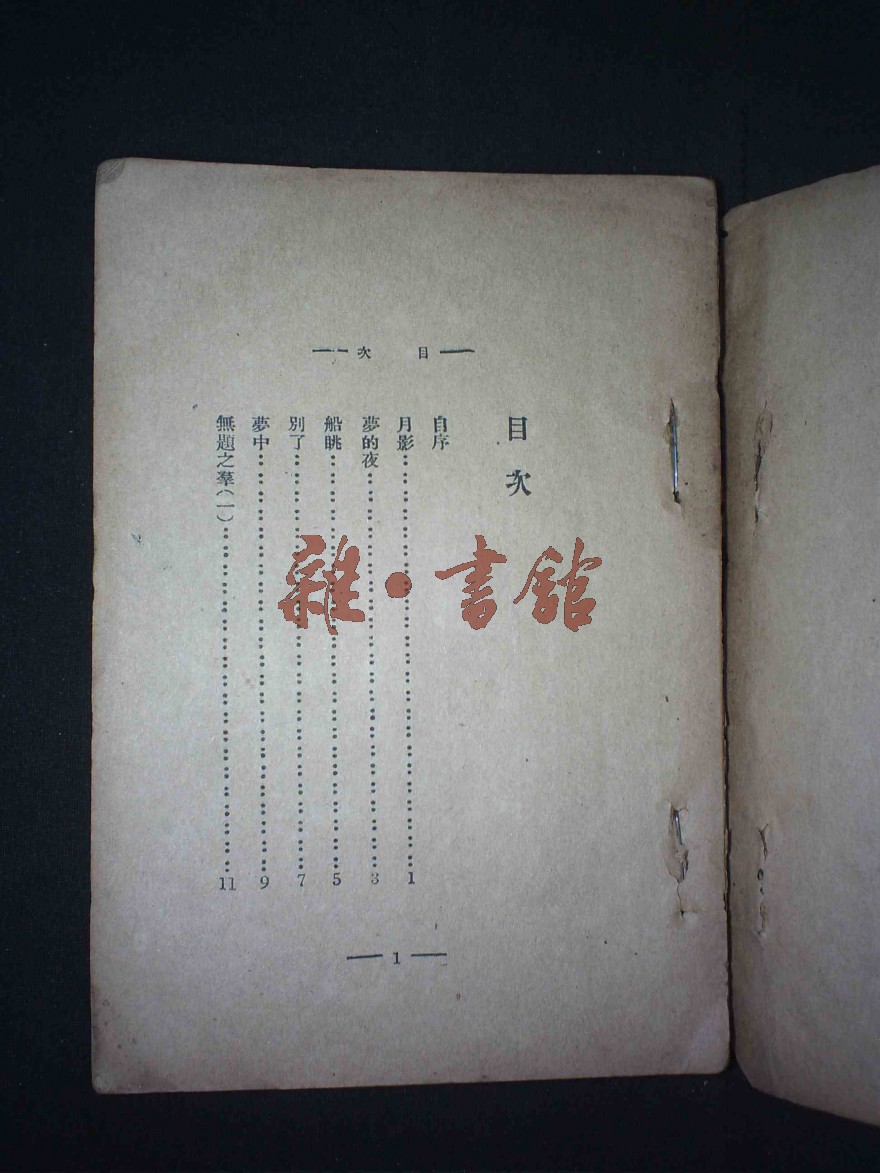 目次
目次
自序
月影……1
夢的夜……3
船眺……5
別了……7
夢中……9
無題之羣(一)……11
1
雜·書館